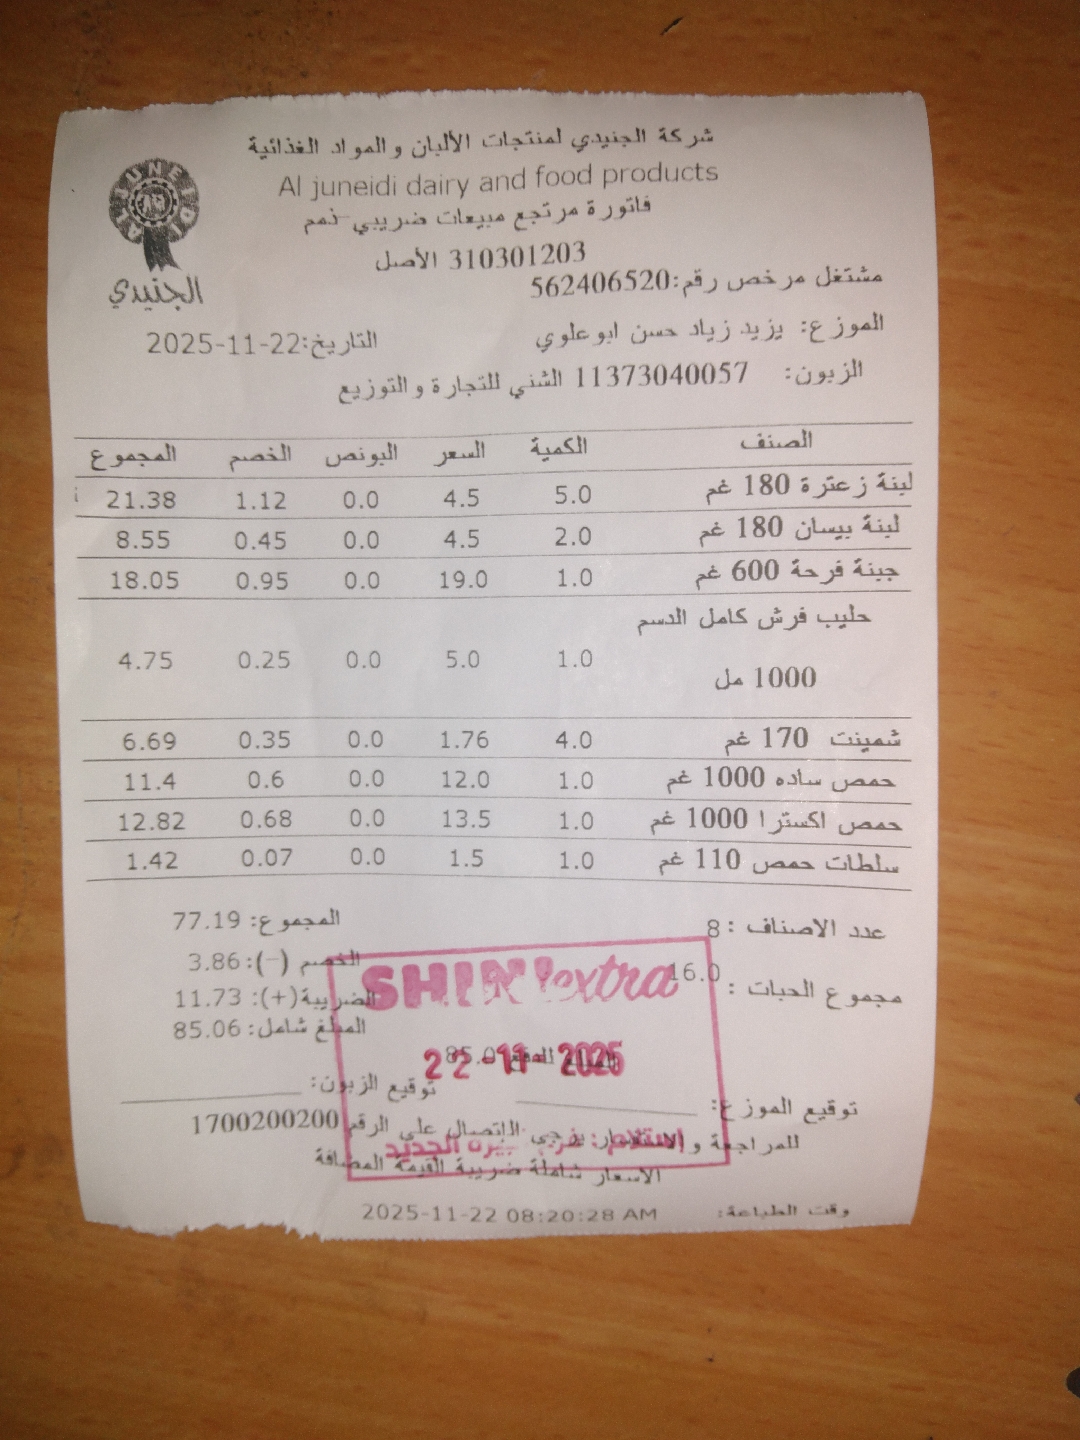 شركة الجنيدي لمنتجات الألبان والمواد الغذائية
Al juneidi dairy and food products
AL JUNEIDI
الجنيدي
فاتورة مرتجع مبيعات ضريبي-ذمم
310301203 الأصل
مشتغل مرخص رقم:562406520
الموزع: يزيد زياد حسن ابوعلوي التاريخ:2025-11-22
الزبون: 11373040057 الشني للتجارة والتوزيع
الصنف الكمية السعر البونص الخصم المجموع
لبنة زعترة 180 غم 5.0 4.5 0.0 1.12 21.38
لبنة بيسان 180 غم 2.0 4.5 0.0 0.45 8.55
جبنة فرحة 600 غم 1.0 19.0 0.0 0.95 18.05
حليب فرش كامل الدسم
1000 مل 1.0 5.0 0.0 0.25 4.75
شمينت 170 غم 4.0 1.76 0.0 0.35 6.69
حمص ساده 1000 غم 1.0 12.0 0.0 0.6 11.4
حمص اكسترا 1000 غم 1.0 13.5 0.0 0.68 12.82
سلطات حمص 110 غم 1.0 1.5 0.0 0.07 1.42
عدد الاصناف : 8 المجموع: 77.19
الخصم (-): 3.86
مجموع الحبات : 16.0 الضريبة(+): 11.73
المبلغ شامل: 85.06
SHINI extra
22-11-2025
توقيع الموزع: توقيع الزبون:
للمراجعة والاستفسار يرجى الاتصال على الرقم 1700200200
الاسعار شاملة ضريبة القيمة المضافة
وقت الطباعة: 2025-11-22 08:20:28 AM